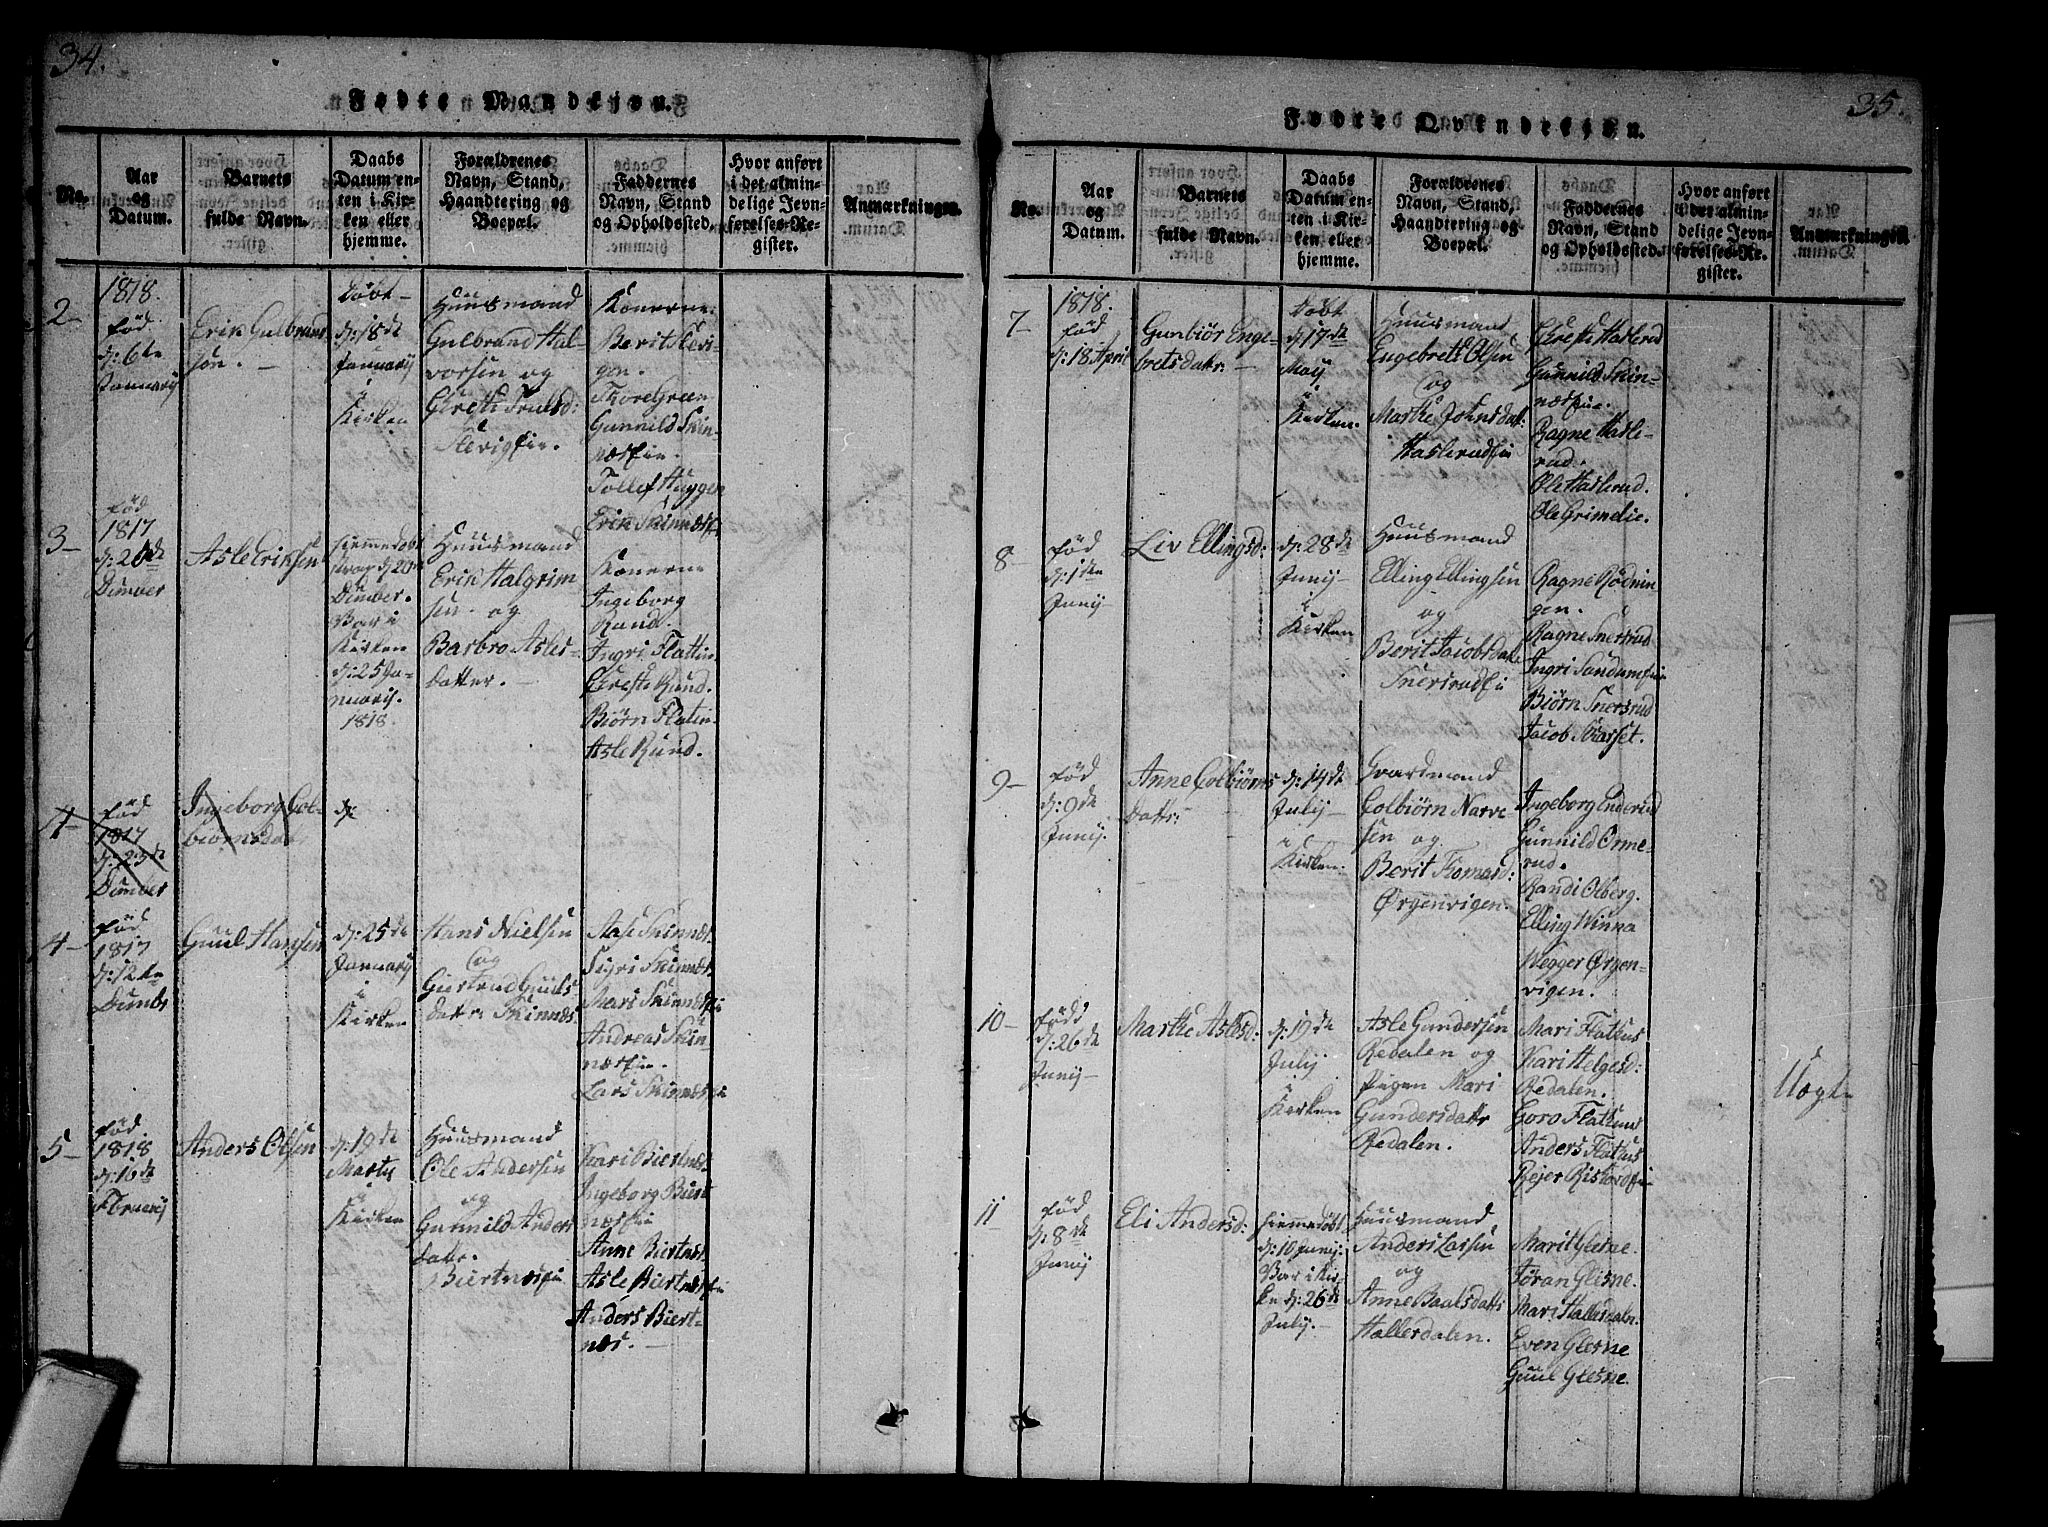 34.
Fødte Mandkiøn.
No.
Aar
og
Datum.
Barnets
fulde Navn.
Daabs
Datum en-
ten i Kir-
ken eller
hjemme.
Forældrenes
Navn, Stand,
Haandtering og
Boepæl.
Faddernes
Navn, Stand
og Opholdssted.
Hvor anført
i det almin-
delige Jevn-
førelses-Re-
gister.
Anmærkninger.
2-
1818.
fød
d: 6te
Januarij
Erik Gulbrand
søn. -
Døbt -
d: 18de
Januarij
i
Kirken
Huusmand
Gulbrand Hal-
vorsen og
Kirken
Konerne
Berit Slevi-
gen.
Thore Green
Gunnild Skin-
næseie.
Tollef Haygen
Erik Skinnæsei
3-
fød
1817
d: 20de
Dember
Asle Eriksen
Hjemmedøbt
d 20
Dember.
Bar i
Kirken
d: 25 Ja-
nuarij.
1818.
Huusmand
Erik Halgrim
sen og
Barbro Asles-
datter. -
Konerne
Ingeborg
Rund.
Ingri Flattin.
Chresti Rund.
Biørn Flatin.
Asle Rund.
4-
fød
1817
d: 23de
Dember
Ingeborg Col-
biørnsdat
d:
4-
fød
1817
d: 12te
Dembr
Guul Hansen
d: 25de
Januarij
i
Kirken
Hans Nielsen
og
Giertrud Guuls
datr: Skinnæs
Aase Skinnæs.
Sigri Skinnæs.
Mari Skinnæsei
Andreas Skin-
næseie.
Lars Skinnæsei
5-
fød
1818
d: 16de
Febuarij
Anders Olsen
d: 19de
Martii
i
Kirken
Huusmand
Ole Andersen
og
Gunnild Anders
datr.
Biertnæseie
Kari Biertnæs.
Ingeborg Biert
næseie
Anne Biertnæs
Asle Biertnæsei
Anders Biert-
næs. -
35.
Fødte Qvindekiøn.
No.
Aar
og
Datum.
Barnets
fulde Navn.
Daabs
Datum en-
ten i Kir-
ken eller
hjemme.
Forældrenes
Navn, Stand,
Haandtering og
Boepæl.
Faddernes
Navn, Stand
og Opholdssted.
Hvor anført
i det almin-
delige Jevn-
førelses-Re-
gister.
Anmærkninger
7-
1818.
fød
d: 18 April
Gunbiør Enge-
bretsdatr. -
Døbt
d: 17de
Maij
i
Kirken.
Huusmand
Engebret Olsen
og
Marthe Johnsdatr:
Haslerudei
Chresti Haslerud
Gunnild Skin-
næseie.
Ragne Hasle-
rud.
Ole Haslerud.
Ole Grimelie.
8-
fød
d: 1ste
Junij-
Liv Ellingsd:
d: 28de
Junij-
i
Kirken
Huusmand
Elling Ellingsen
og
Berit Jacobsdatr
Snersrudei
Ragne Rødnin
gen.
Ragne Snersrud
Ingri Sandumei
Biørn Snersrud
Jacob Skarset.
9-
fød
d: 9de
Junij.
Anne Colbiørns
Dattr:
d: 14de
Julij-
i
Kirken.
Gaardmand
Colbiørn Narve
sen og
Berit Thomasd:
Ørgenvigen.
Ingeborg Enderud
Gunnild Orme-
rud.
Randi Olberg.
Elling Winna
Wegger Ørgen-
vigen.
10-
født
d: 26de
Junij-
Marthe Aslesd:
d: 19de
Julij
i
Kirken
Asle Gundersen
Redalen og
Pigen Mari
Gundersdattr
Redalen.
Mari Flatus
Kari Helgesd:
Redalen.
Goro Flatus
Anders Flatus
Rejer Ristordei
Uægte
11-
fød
d: 8de
Junij
Eli Andersd:
Hjemmedøbt
d: 10 Junij.
Bar i Kir
ke d: 26de
Julij. -
Huusmand
Anders Larsen
og
Anne Baalsdattr
Hallerdalen.
Marit Glesne.
Jøran Glesne.
Mari Hallerdaln.
Even Glesne
Guul Glesne.